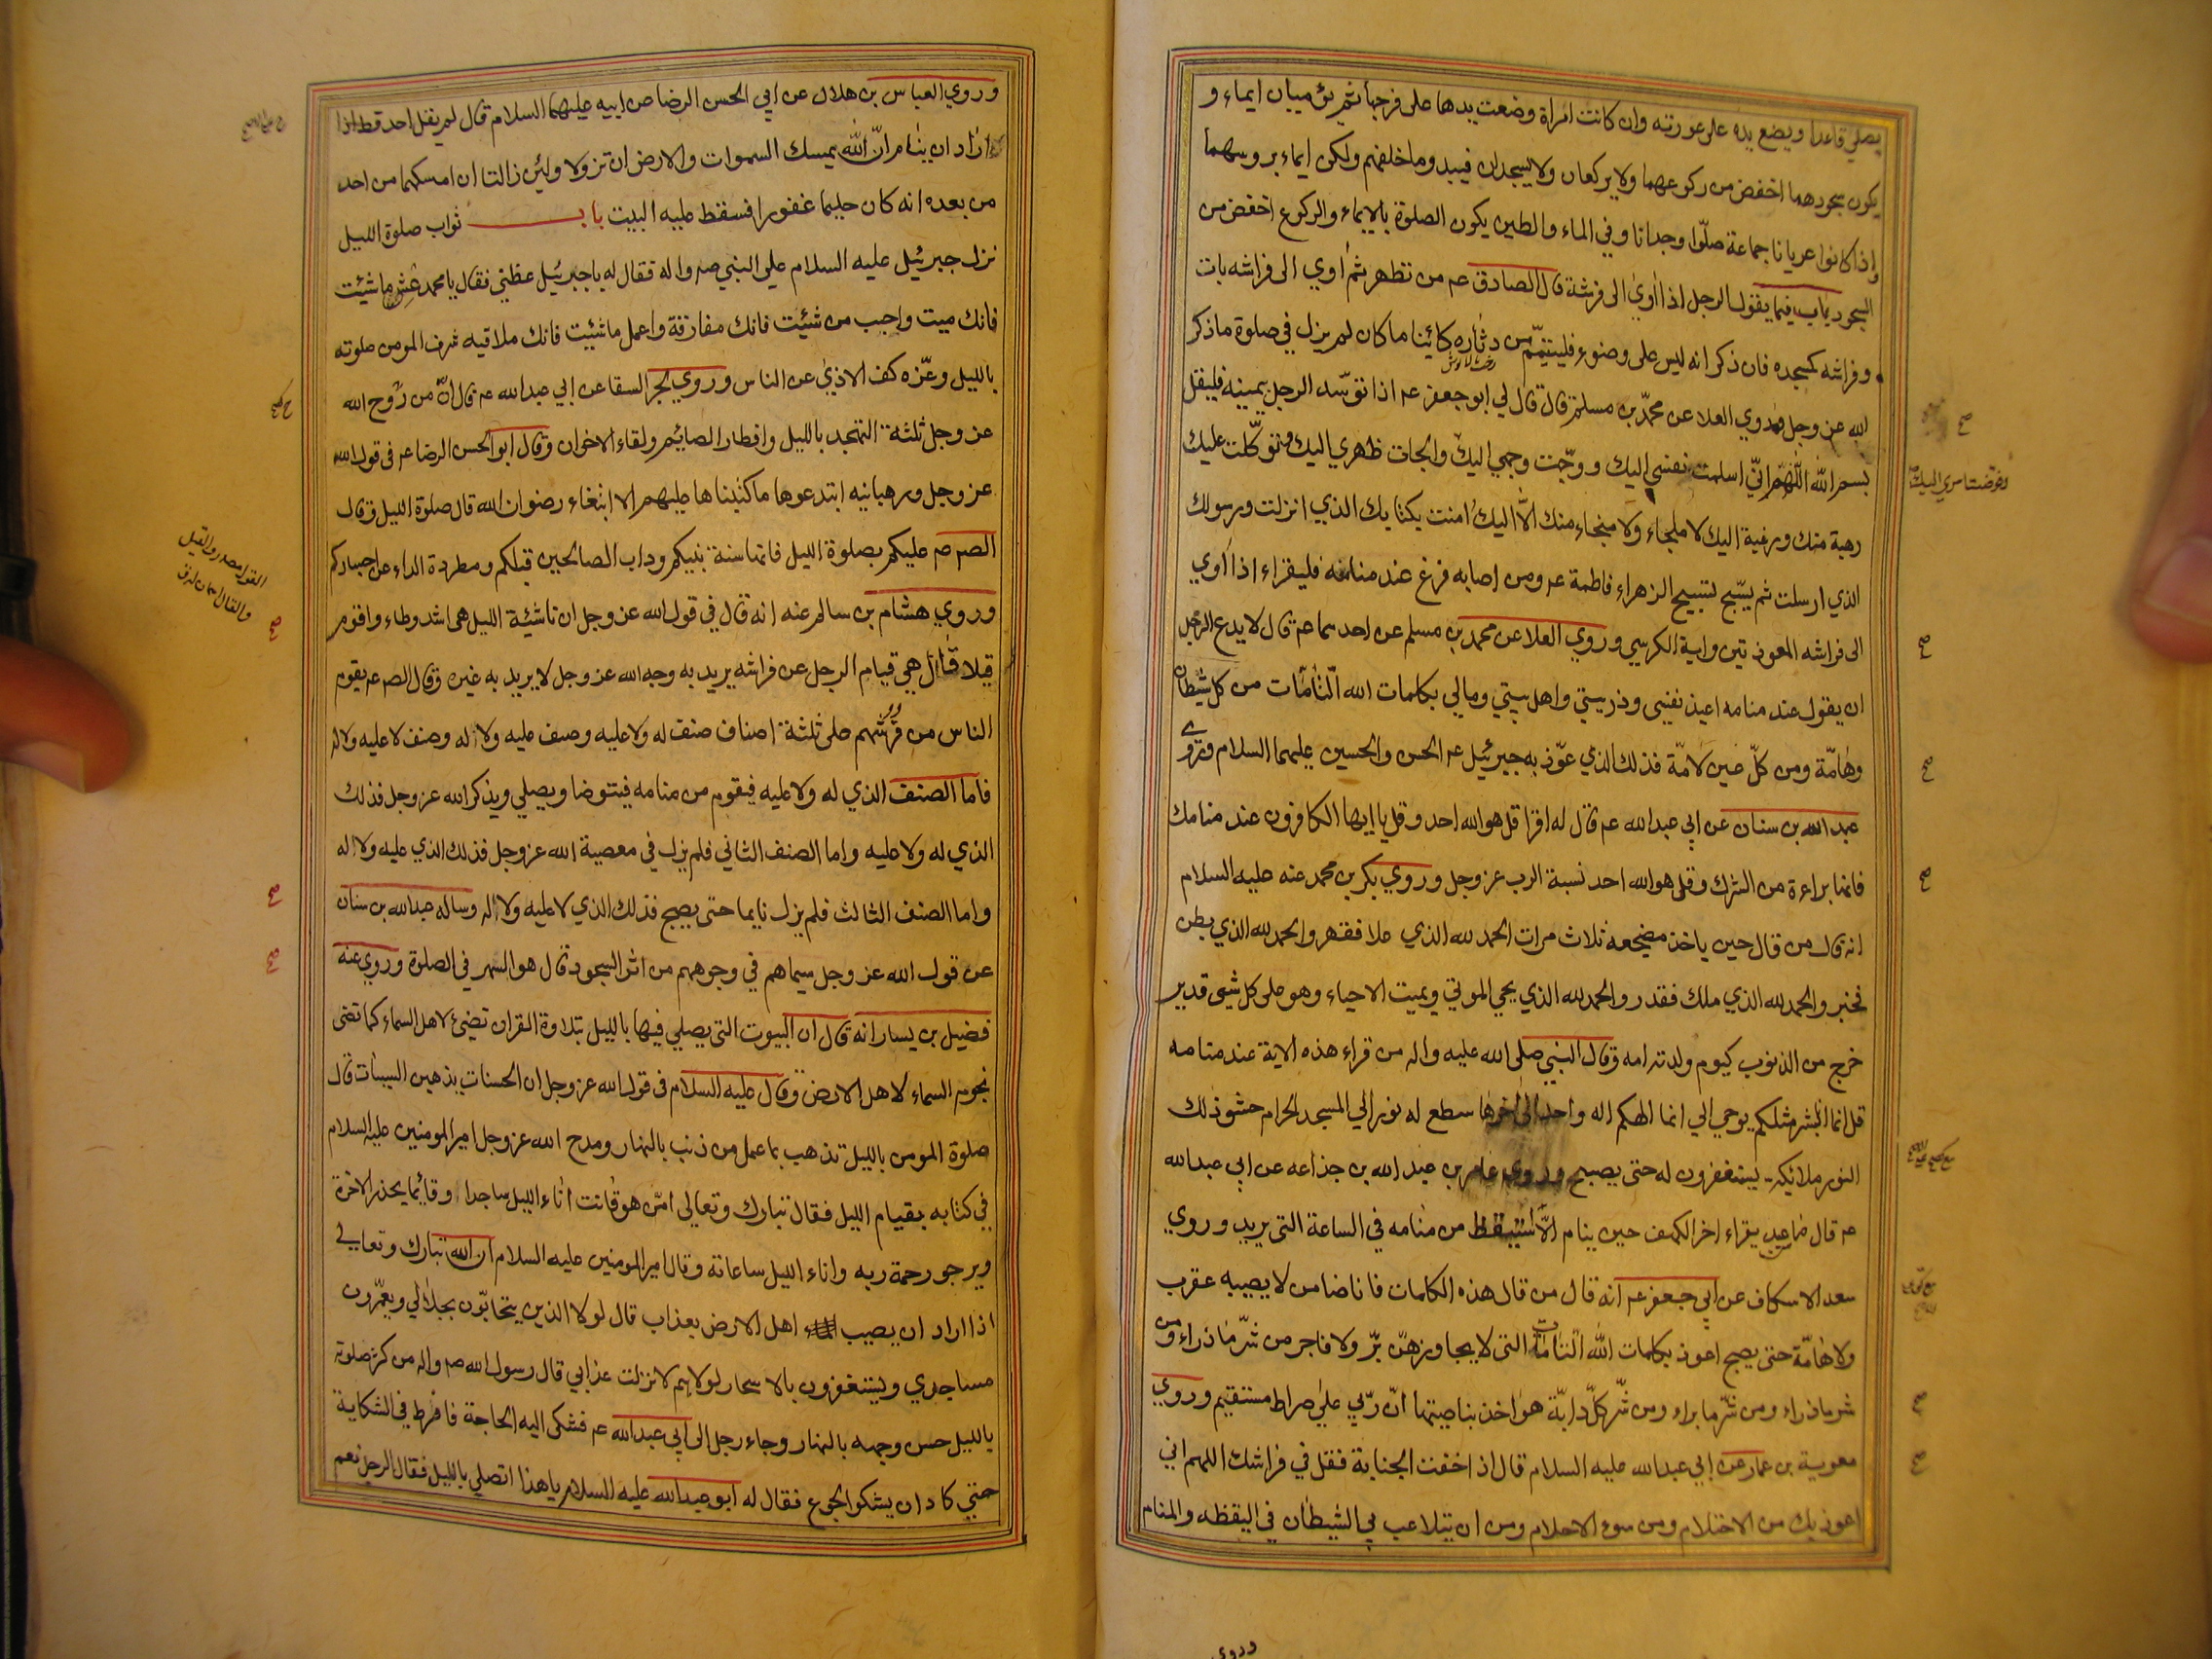 يصلي قاعدا ويضع يده على عورته وان كانت امراة وضعت يدها على فرجها ثم يؤميان ايماء و
يكون سجودهما اخفض من ركوعهما ولا يركعان ولا يسجدان فيبدو ما خلفهم ولكن ايماء بروسهما
واذا كانوا عريانا جماعة صلّوا وجدانا وفي الماء والطين يكون الصلوة بالايماء والركوع اخفض من
السجود باب فيما يقول الرجل اذا اوى الى فرشة قال الصادق عم من تطهر ثم اوي الى فراشه بات
وفراشه كمسجده فان ذكر انه ليس على وضوء فليتيمّم من دثاره كائنا ما كان لم يزل في صلوة ما ذكر
الله عز وجل وروي العلا عن محمّد بن مسلم قال قال لي ابو جعفر عم اذا توسّد الرجل يمينه فليقل
بسم الله اللّهم انّي اسلمت نفسي اليك ووجّهت وجهي اليك والجات ظهري اليك وتوكّلت عليك
وفوضت امري اليك
رهبة منك ورغبة اليك لا ملجاء ولا منجاء منك الّا اليك امنت بكتابك الذي انزلت ورسولك
الذي ارسلت ثم يسّبح تسبيح الزهراء فاطمة عم ومن اصابه فزغ عند منامه فليقراء اذا اوي
الى فراشه المعوذتين واية الكرسي وروي العلا عن محمد بن مسلم عن احدهما عم قال لا يدع الرجل
ان يقول عند منامه اعيذ نفسي وذريتي واهل بيتي ومالي بكلمات الله التّامّات من كل شيطان
وهامّة ومن كلّ عين لامّة فذلك الذي عوّذ به جبرئيل عم الحسن والحسين عليهما السلام وروي
عبد الله بن سنان عن ابي عبد الله عم قال له اقرا قل هو الله احد وقل يا ايها الكافرون عند منامك
فانها براءة من الشرك وقل هو الله احد نسبة الرب عز وجل وروي بكر بن محمد عنه عليه السلام
انه قال من قال حين ياخذ مضجعه ثلاث مرات الحمد لله الذي علا فقهر والحمد لله الذي بطن
فخبر والحمد لله الذي ملك فقدر والحمد لله الذي يحي الموتي ويميت الاحياء وهو على كل شيى قدير
خرج من الذنوب كيوم ولدته امه وقال النبي صلى الله عليه واله من قراء هذه الاية عند منامه
قل انما انا بشر مثلكم يوحي الي انما الهكم اله واحد الى اخرها سطع له نور الي المسجد الحرام حشو ذلك
النور ملائكه يستغفرون له حتى يصبح وروي عامر بن عبد الله بن جذاعه عن ابي عبد الله
عم قال ما من عبد يقراء اخر الكهف حين ينام الّا استيقظ من منامه في الساعة التى يريد وروي
سعد الاسكاف عن ابي جعفر عم انه قال من قال هذه الكلمات فانا ضامن لا يصيبه عقرب
ولا هامّة حتى يصبح اعوذ بكلمات الله التّامات التى لا يجاوزهنّ برّ ولا فاجر من شرّ ما ذراء ومن
شر ما ذراء ومن شرّ ما براء ومن شّر كلّ دابّة هو اخذ بناصيتها انّ ربّي على صراط مستقيم وروي
معوية بن عمار عن ابي عبد الله عليه السلام قال اذ اخفت الجنابة فقل في فراشك اللهم اني
اعوذ بك من الاحتلام ومن سوء الاحلام ومن ان يتلاعب بي الشيطان في اليقظه والمنام
وروي
وروي العباس بن هلال عن ابي الحسن الرضا عن ابيه عليهما السلام قال لم يقل احد قط اذا
اراد ان ينام انّ الله يمسك السموات والارض ان تزولا ولئن زالتا ان امسكهما من احد
من بعده انه كان حليما غفورا فسقط عليه البيت باب ثواب صلوة الليل
نزل جبرئيل عليه السلام على النبي صم واله فقال له يا جبرئيل عظني فقال يا محمد عش ما شئت
فانك ميت واحبب من شئت فانك مفارقة واعمل ما شئت فانك ملاقيه شرف المومن صلوته
بالليل وعزّه كف الاذي عن الناس وروي بحر السقا عن ابي عبد الله عم قال انّ من رَوح الله
عز وجل ثلثة التهجد بالليل وافطار الصايم ولقاء الاخوان وقال ابو الحسن الرضا عم في قول الله
عز وجل ورهبانيه ابتدعوها ما كتبناها عليهم الا ابتغاء رضوان الله قال صلوة الليل وقال
الصم عم عليكم بصلوة الليل فانها سنة نبيكم وداب الصالحين قبلكم ومطردة الداء عن اجسادكم
القول مصدر والقيل
والقال اسمان له ق
وروي هشام بن سالم عنه انه قال في قول الله عز وجل ان ناشئة الليل هى اشد وطاء واقوم
قيلا قال هي قيام الرجل عن فراشه يريد به وجه الله عز وجل لا يريد به غيره وقال الصم عم يقوم
الناس من فرشهم على ثلثة اصناف صنف له ولا عليه وصنف عليه ولا له وصنف لا عليه ولا له
فاما الصنف الذي له ولا عليه فيقوم من منامه فيتوضا ويصلي ويذكر الله عز وجل فذلك
الذي له ولا عليه واما الصنف الثاني فلم يزل في معصية الله عز وجل فذلك الذي عليه ولا له
واما الصنف الثالث فلم يزل نايما حتى يصبح فذلك الذي لا عليه ولا له وساله عبد الله بن سنان
عن قول الله عز وجل سيماهم في وجوههم من اثر السجود قال هو السهر في الصلوة وروي عنه
فضيل بن يسار انه قال ان البيوت التى يصلي فيها بالليل بتلاوة القران تضئ لاهل السماء كما تضى
نجوم السماء لاهل الارض وقال عليه السلام في قول الله عز وجل ان الحسنات يذهبن السيئات قال
صلوة المومن بالليل تذهب بما عمل من ذنب بالنهار ومدح الله عز وجل امير المومنين عليه السلام
في كتابه بقيام الليل فقال تبارك وتعالى امّن هو قانت اناء الليل ساجدا وقائما يحذر الاخرة
ويرجو رحمة ربه واناء الليل ساعاته وقال امير المومنين عليه السلام ان الله تبارك وتعالى
اذا اراد ان يصيب اهل الارض بعذاب قال لولا الذين يتحابّون بجلالي ويعمّرون
مساجدي ويستغفرون بالاسحار لولاهم لانزلت عذابي قال رسول الله صم واله من كثر صلوته
بالليل حسن وجهه بالنهار وجاء رجل الى ابي عبد الله عم فشكى اليه الحاجة فافرط في الشكاية
حتي كاد ان يشكو الجوع فقال له ابو عبد الله عليه السلام يا هذا اتصلي بالليل فقال الرجل نعم